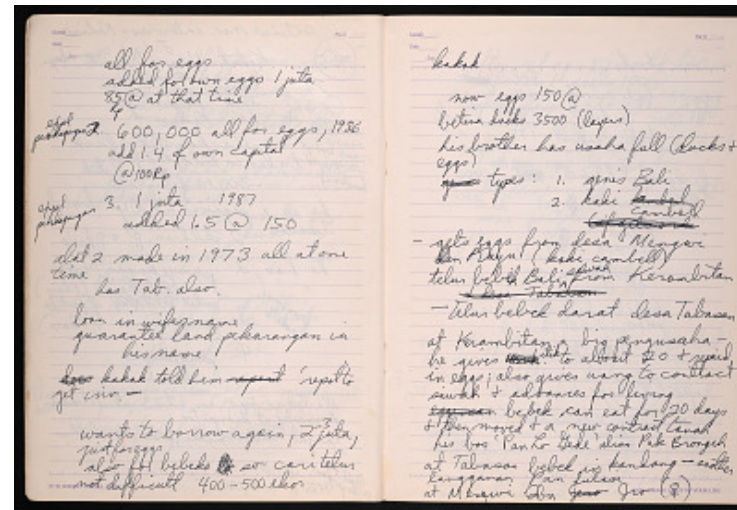 all for eggs
added for own eggs 1 juta
85@ at that time
Rp
600,000 all for eggs, 1986
add 1.4 of own capital
@100Rp
3. 1 juta 1987
added 1.5 @ 150
alat2 made in 1973 all at one
time
has Tab. also.
loan in wife's name
guarantee land pekarangan in
his name
kakak told him
get inv. –
wants to borrow again, 2-3 juta,
just for eggs
also for bebeks so cari telur
not difficult 400-500 ekor
kakak
now eggs 150@
betina ducks 3500 (layers)
his brother has usaha full (ducks +
eggs)
types: 1. genis Bali
2. kaki
cambell
– gets eggs from desa Mengwi
(kaki cambell)
telur bebek Bali sawah from Kerambitan
– telur bebek darat desa Tabanan
at Kerambitan, a big pengusaha –
he gives to about 20 +
in eggs; also gives uang to contract
sawah + advances for living
bebek can eat for 20 days
+ then moved + a new contract tanah
his bos 'Pan Lo Gede' alias Pak
at Tabanan bebek in kandang –
langganan
at Mengwi